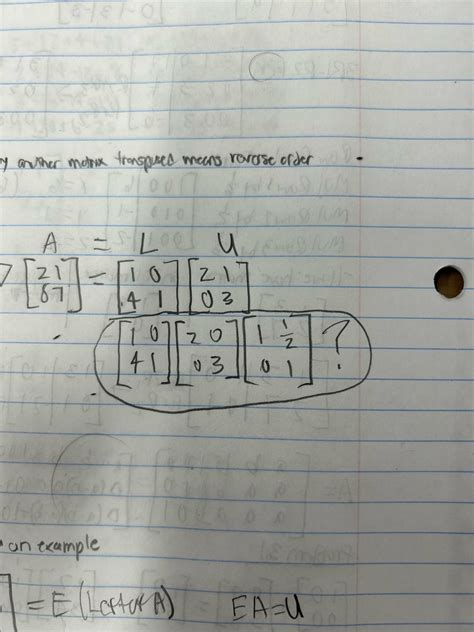 another matrix transposed means reverse order
A = L U
[2 1] = [1 0] [2 1]
[8 7] [4 1] [0 3]
[1 0] [2 0] [1 1/2] ?
[4 1] [0 3] [0 1]
an example
] = E (Left of A) EA = U